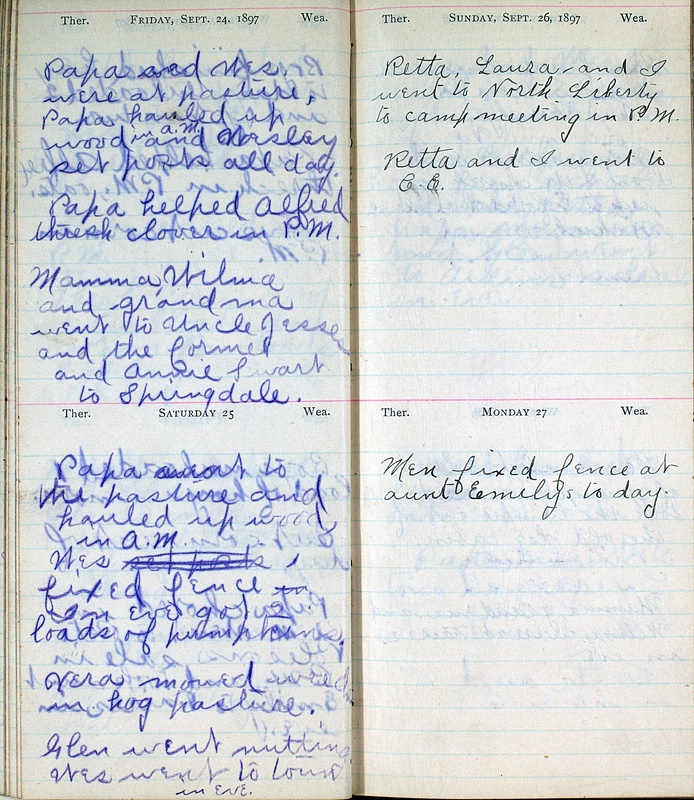 Ther. FRIDAY, SEPT. 24, 1897 Wea.
Papa and Wes.
were at pasture,
Papa hauled up
wood in a.m. and Wesley
set posts all day.
Papa helped Alfred
thresh clover in P.M.
Mamma, Wilma
and grandma
went to Uncle Jesse
and the former
and Annie Swart
to Springdale.
Ther. SATURDAY 25 Wea.
Papa went to
the pasture and
hauled up wood
in A.M.
Wes set posts
fixed fence
in eve got
loads of pumpkins.
Vera mowed weeds
in hog pasture.
Glen went nutting
Wes went to town
in eve.
Ther. SUNDAY, SEPT. 26, 1897 Wea.
Retta, Laura and I
went to North Liberty
to campmeeting in P.M.
Retta and I went to
C.E.
Ther. MONDAY 27 Wea.
Men fixed fence at
aunt Emily's to day.